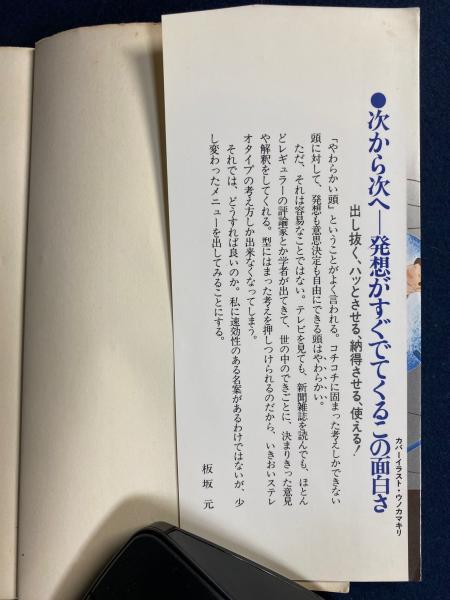 ●次から次へ―発想がすぐでてくるこの面白さ
出し抜く、ハッとさせる、納得させる、使える!
「やわらかい頭」ということがよく言われる。コチコチに固まった考えしかできない
頭に対して、発想も意思決定も自由にできる頭はやわらかい。
ただ、それは容易なことではない。テレビを見ても、新聞雑誌を読んでも、ほとん
どレギュラーの評論家とか学者が出てきて、世の中のできごとに、決まりきった意見
や解釈をしてくれる。型にはまった考えを押しつけられるのだから、いきおいステレ
オタイプの考え方しか出来なくなってしまう。
それでは、どうすれば良いのか。私に速効性のある名案があるわけではないが、少
し変わったメニューを出してみることにする。
板坂 元
カバーイラスト・ウノカマキリ